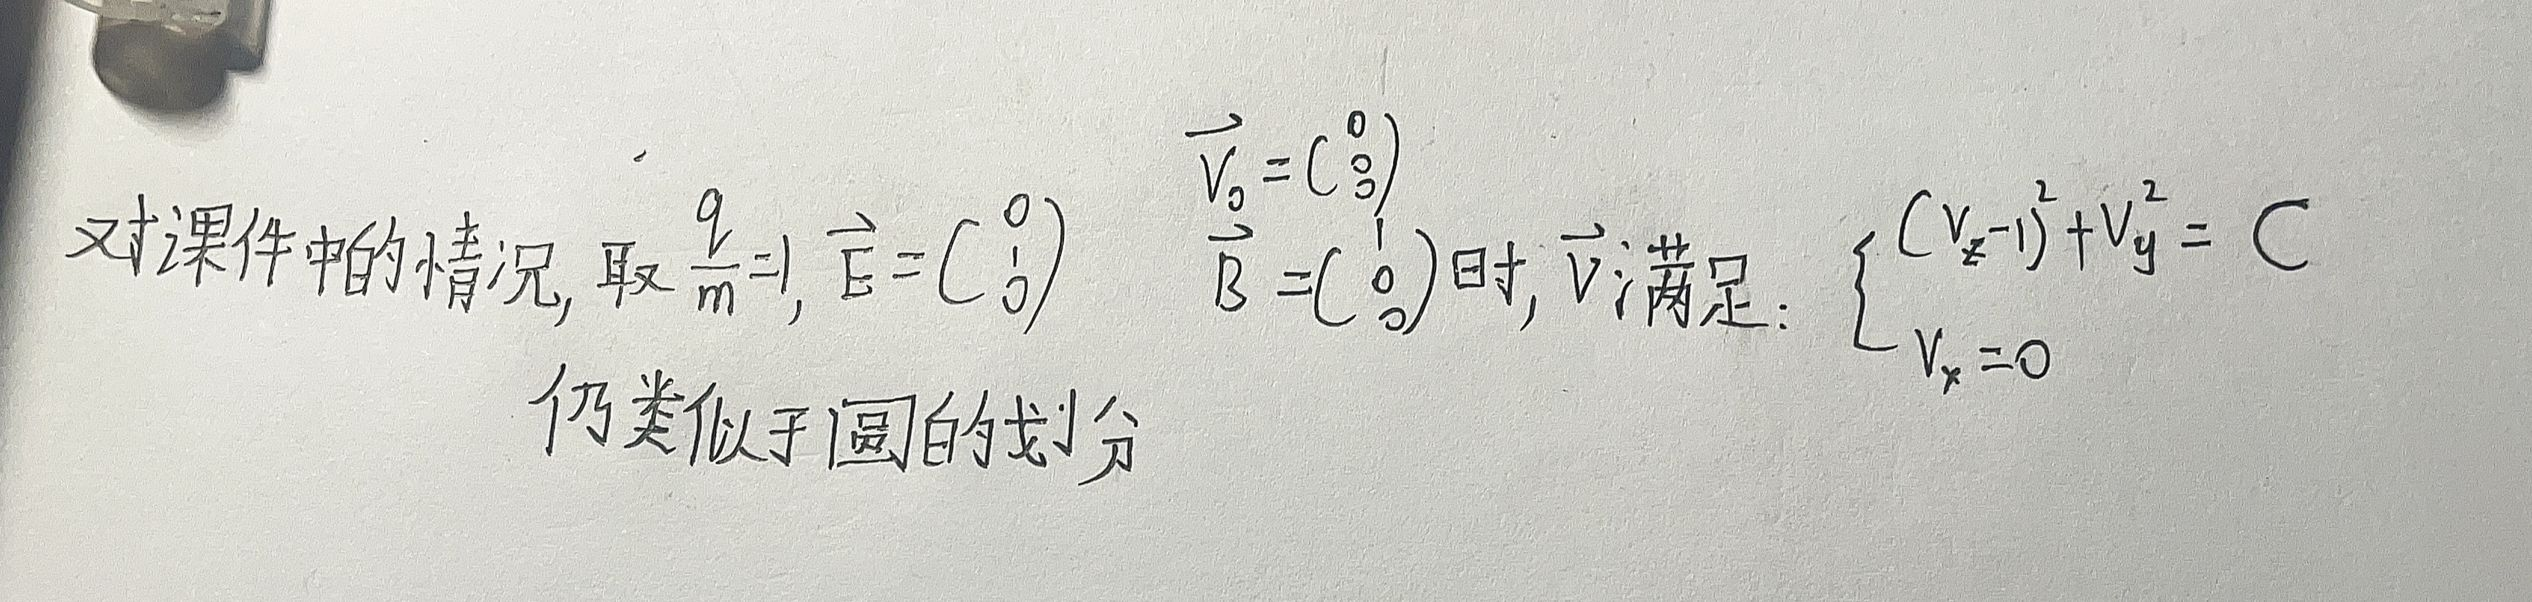 对课件中的情况, 取 q/m=1, E⃗=(0 1 0) V⃗₀=(0 0 0) B⃗=(1 0 0)时, V⃗满足: { (Vz-1)²+Vy²= C
Vx=0
仍类似于圆的划分